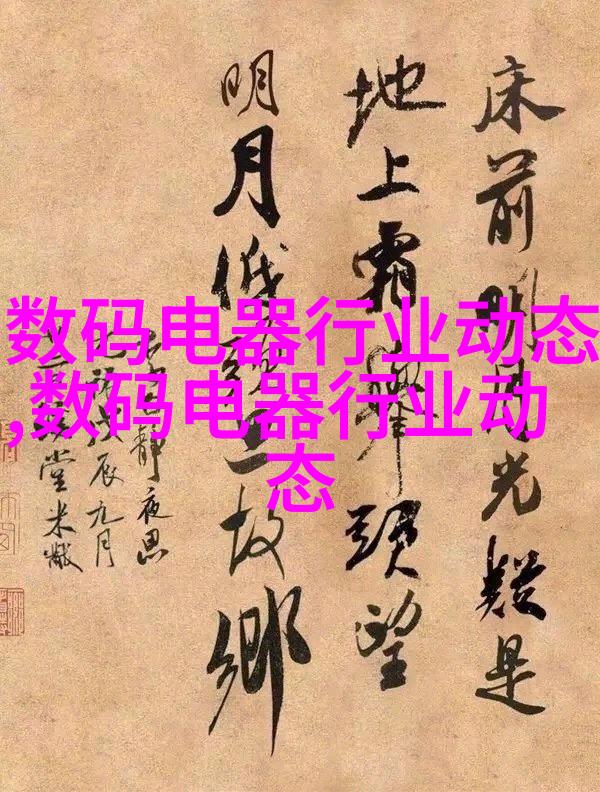 床前明月光疑是
地上霜舉頭望
明月低頭思故鄉
靜夜思
戊辰九月
堂米黻
数码电器行业动态
,数码电器行业动
态